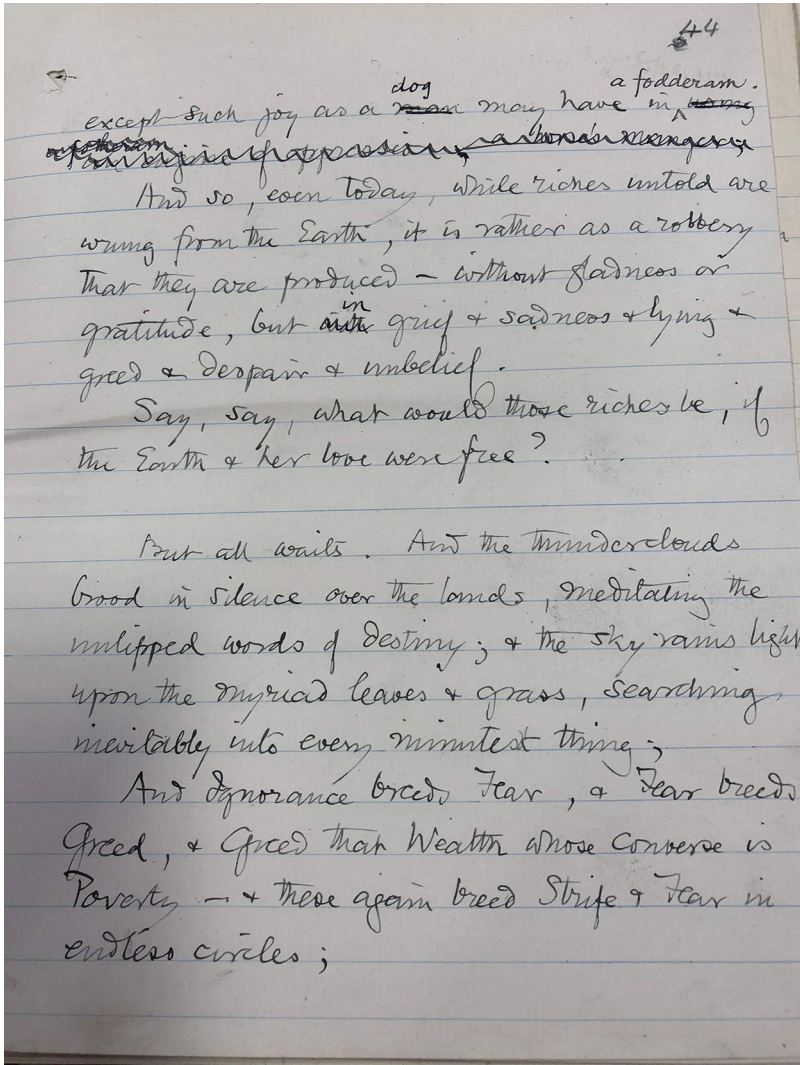 44
dog a fodderam.
except such joy as a man may have in, using
an engine of oppression, a horse's manger;
And so, even today, while riches untold are
wrung from the Earth, it is rather as a robbery
that they are produced – without gladness or
in
gratitude, but with grief & sadness & lying &
greed & despair & unbelief.
Say, say, what would those riches be, if
the Earth & her love were free?
But all waits. And the thunderclouds
brood in silence over the lands, meditating the
unlipped words of destiny; & the sky rains light
upon the myriad leaves & grass, searching
inevitably into every minutest thing;
And Ignorance breeds Fear, & Fear breeds
Greed, & Greed that Wealth whose converse is
Poverty – & these again breed Strife & Fear in
endless circles;